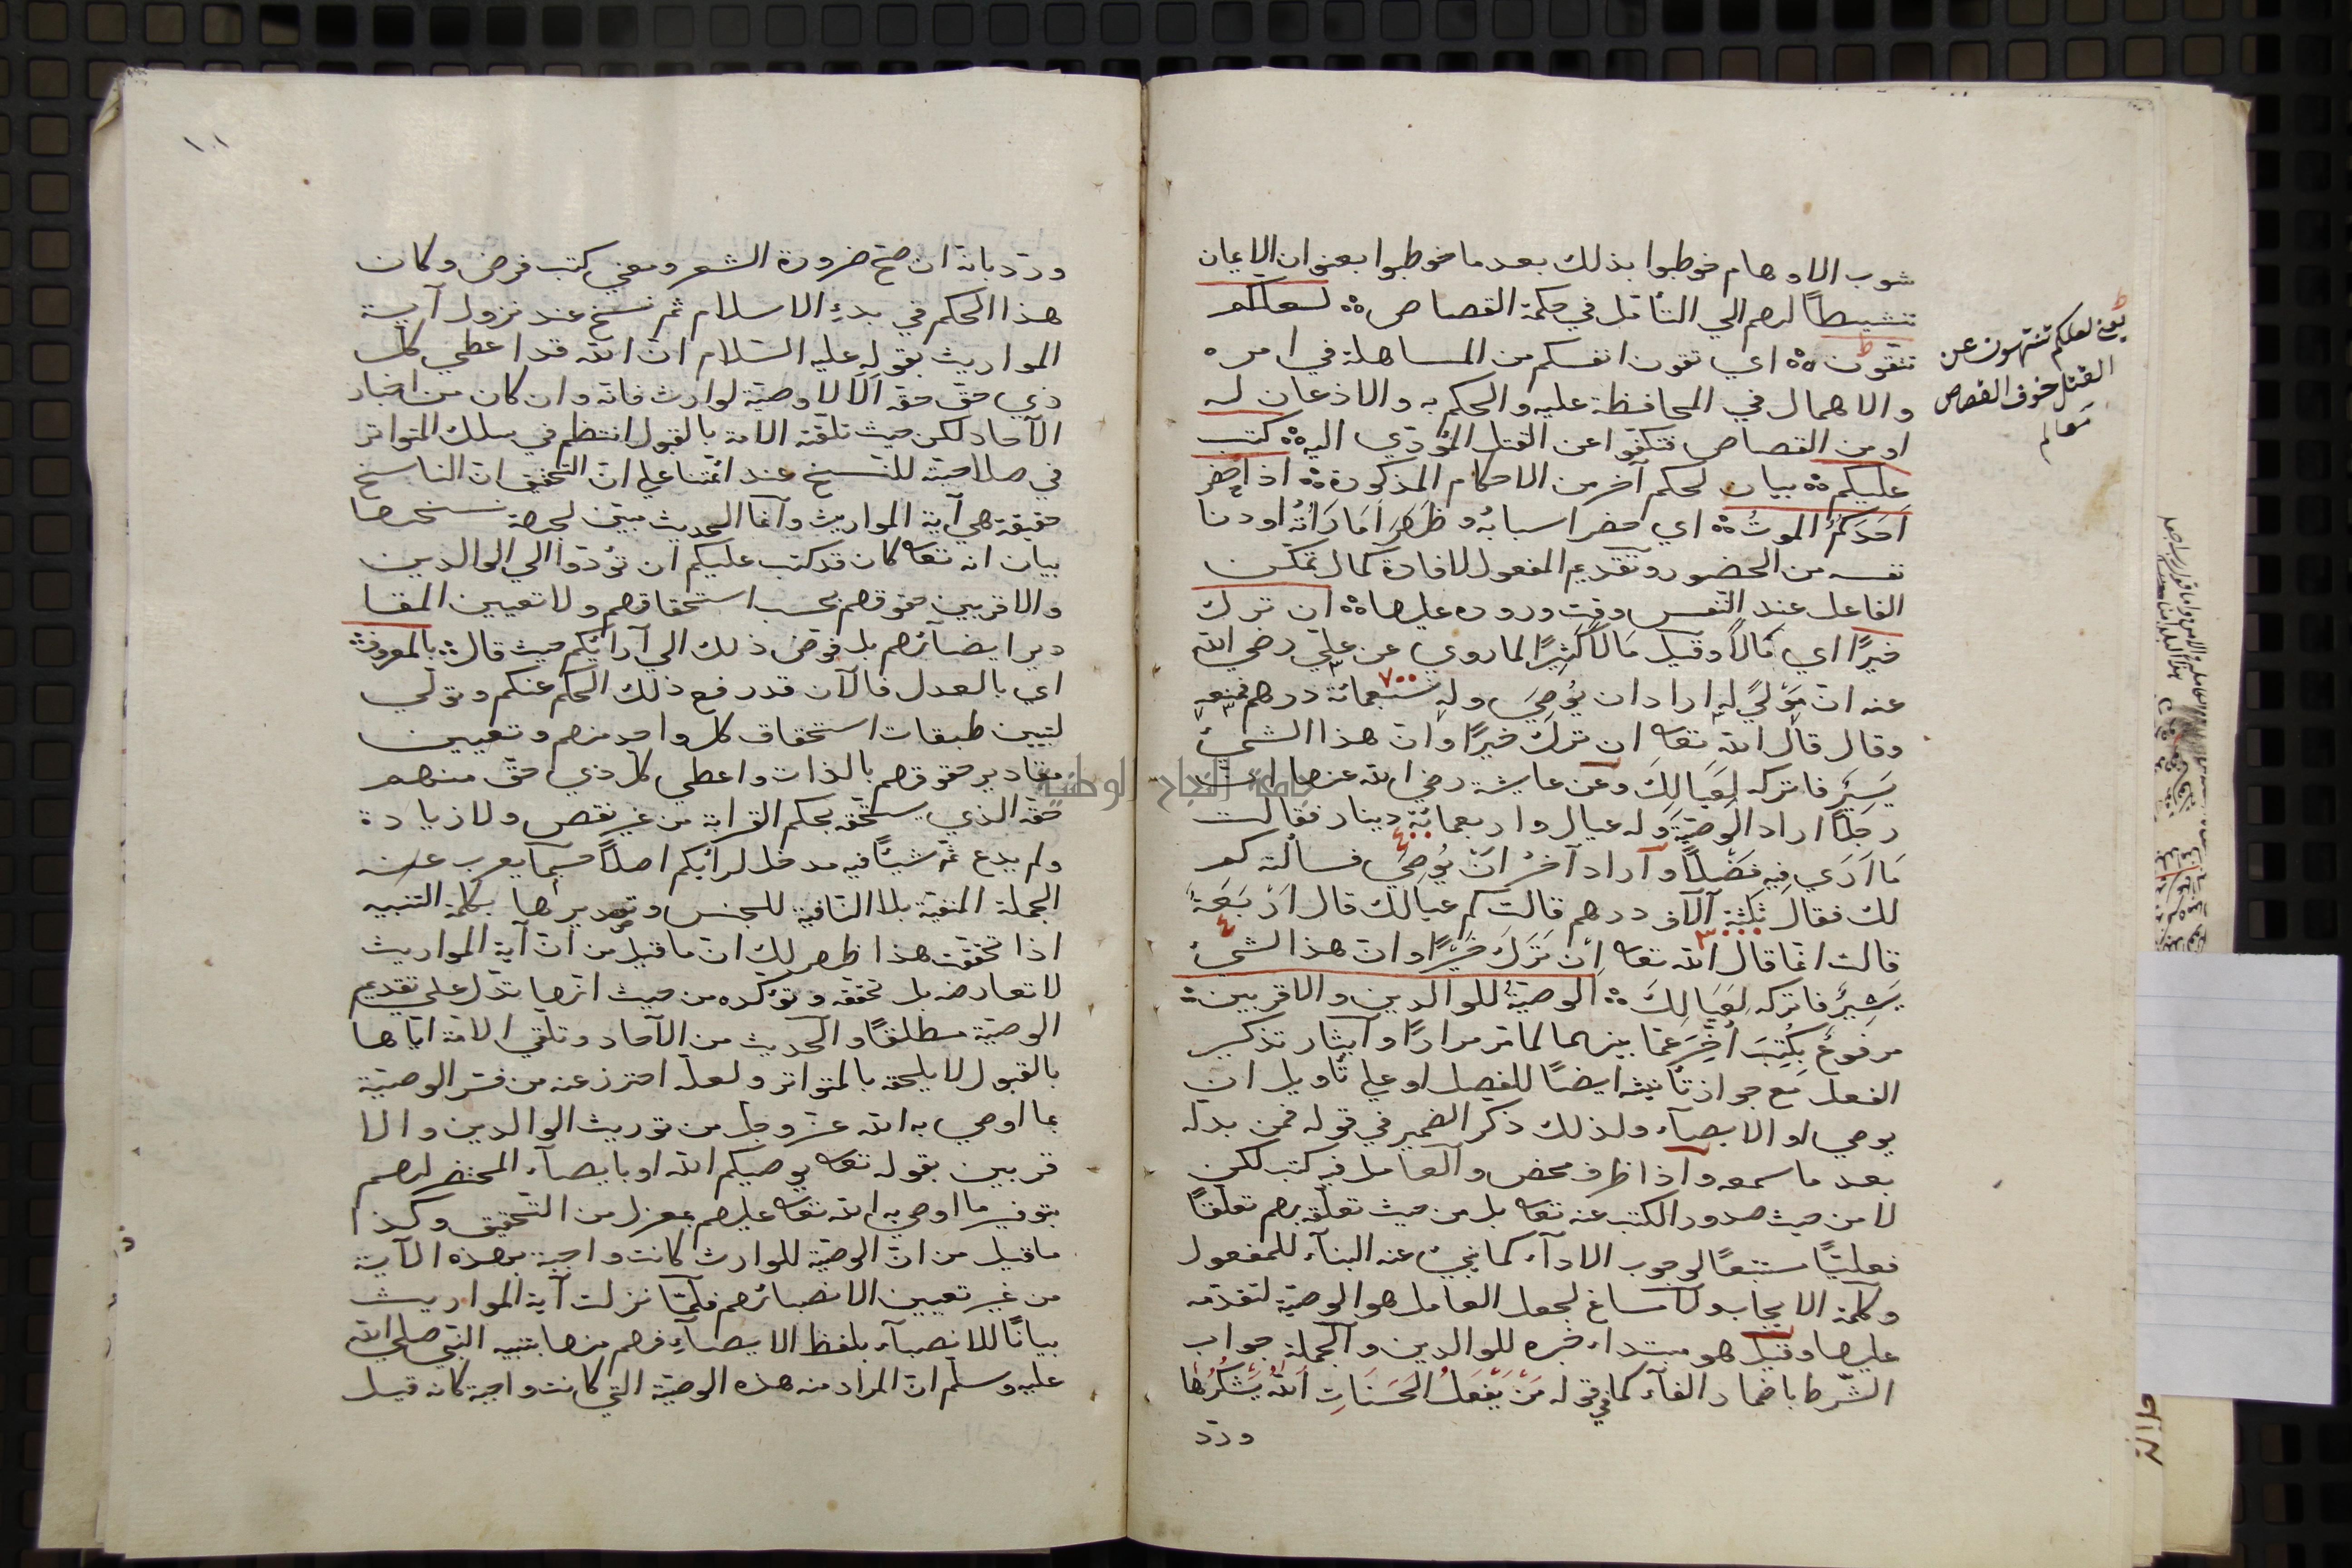 شوب الاوهام خوطبوا بذلك بعدما خوطبوا بعنوان الايمان
تنشيطاً لهم الي التأمّل في حكمة القصاص ۞ لعلكم
تتقون ۞ اي تقون انفسكم من المساهلة في امره
والاهمال في المحافظة عليه والحكم به والاذعان له
او من القصاص فتكفّوا عن القتل المؤدّي اليه ۞ كتب
عليكم ۞ بيان لحكم آخر من الاحكام المذكورة ۞ اذا حضر
اَحَدَكُمُ الموتُ ۞ اي حضر اسبابُه وظَهَرَ اَمَارَاتُه اودنا
نفسه من الحضور وتقديم المفعول لافادة كمال تمكن
الفاعل عند النفس وقت وروده عليها ۞ ان ترك
خيرًا اي مَالاً وقيل مَالاً كَثِيرًا لما روي عن عليّ رضي الله
عنه انّ مَوْليً له اراد ان يُوصِيَ وله سَبعمائة درهم فمنعه
٧٠٠
وقال قال الله تعا ان ترك خيرًا وان هذا الشيئ
يَسِيرٌ فاتركه لِعَيَالِكَ وعن عايشة رضي الله عنها ان
رجلاً اراد الوصيّةَ وَله عيال واربعمائة دينار فقالت
٤٠٠
مَا اَرَي فِيهِ فَضْلاً وآراد آخرُ اَنْ يُوصِيَ فسألته كم
لك فقال ثلثة آلآف درهم قالت كم عيالك قال اَرْبَعَةٌ
٣٠٠٠ ٤
قالت انّما قال الله تعا اِنْ تَرَكَ خَيْرًا وان هذا الشيئ
يَسِيرٌ فاتركه لِعَيَالِكَ ۞ الوصيّةُ للوالدين والاقربين ۞
مرفوعٌ بِكُتِبَ اُخِّرَ عمّا بينهما لما مرّ مرارًا وآيثار تذكير
الفعل مع جواز تأنيثه ايضًا للفصل او علي تأويل ان
يوصي او الايصآء ولذلك ذكر الضمير في قوله فمن بدله
بعد ما سمعه وآذا ظرف محض وآلعامل فيه كتب لكن
لا من حيث صدور الكتب عنه تعا بل من حيث تعلّقه بهم تعلّقًا
فعليًّا مستتبعًا لوجوب الادآء كما ينبئ عنه البنآء للمفعول
وكلمة الايجاب ولا مساغ لجعل العامل هو الوصيّة لتقدّمه
عليها وقيل هو مبتداء خبره للوالدين والجملة جواب
الشّرط باضمار الفآء كما في قوله مَنْ يَفْعَلُ الحَسَنَاتِ اَللهُ يَشْكُرُهَا
وردّ
يعني لعلكم تنتهون عن
القتل خوف القصاص
معالم
١٠١
وردّ بانه ان صحّ ضرورة الشعر ومعني كتب فرض وكان
هذا الحكم في بدءِ الاسلام ثم نسخ عند نزول آية
المواريث بقوله عليه السّلام انّ الله قد اعطي كل
ذي حقّ حقّه اَلَا لا وصيّة لوارث فانّه وان كان من اخبار
الآحاد لكن حيث تلقّته الامة بالقبول انتظم في سلك المتواتر
في صلاحيّته للنّسخ عند ائمّتنا علي انّ التحقيق ان الناسخ
حقيقة هي آية المواريث وآنما الحديث مبيّن لجهة نسخها
بيان انه تعا كان قد كتب عليكم ان تؤدّوا الي الوالدين
والاقربين حقوقهم بحسب استحقاقهم ولا تعيين المقا
دير ايضآئهم بل فوّض ذلك الي آرائكم حيث قال ۞ بالمعروف ۞
اي بالعدل فالآن قد رفع ذلك الحكم عنكم وتولّي
لتبيين طبقات استحقاق كل واحد منهم وتعيين
مقادير حقوقهم بالذات واعطي كل ذي حقّ منهم
حقّه الذي يستحقّه بحكم القرابة من غير نقص ولا زيادة
ولم يدع ثمّه شيئًا فيه مدخل لرأيكم اصلاً حسبما يعرب عنه
الجملة المنفيّة بلا النّافية للجنس وتصديرها بكلمة التنبيه
اذا تحقّقت هذا ظهر لك ان ما قيل من انّ آية المواريث
لا تعارضه بل تحقّقه وتؤكده من حيث انّها تدّل علي تقديم
الوصيّة مطلقًا والحديث من الآحاد وتلقّي الامّة ايّاها
بالقبول لا يلحقه بالمتواتر ولعلّه احترز عنه من فسّر الوصيّة
بما اوصي به الله عزّ وجل من توريث الوالدين والا
قربين بقوله تعا يوصيكم الله او بايصآء المحتضر لهم
بتوفير ما اوصي به الله تعا عليهم بمعزل من التحقيق وكذا
ما قيل من انّ الوصيّة للوارث كانت واجبة بهذه الآية
من غير تعيين الانصبائهم فلمّا نزلت آية المواريث
بيانًا للانصبآء بلفظ الايصآءِ فهم منها بتنبيه النّبي صلي الله
عليه وسلّم انّ المراد منه هذه الوصيّة التي كانت واجبة كانه قيل
جامعة النجاح الوطنية